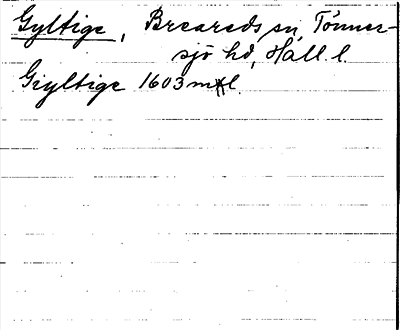 Gyltige, Breareds sn, Tönner-
sjö hd, Hall. l.
Giyltige 1603